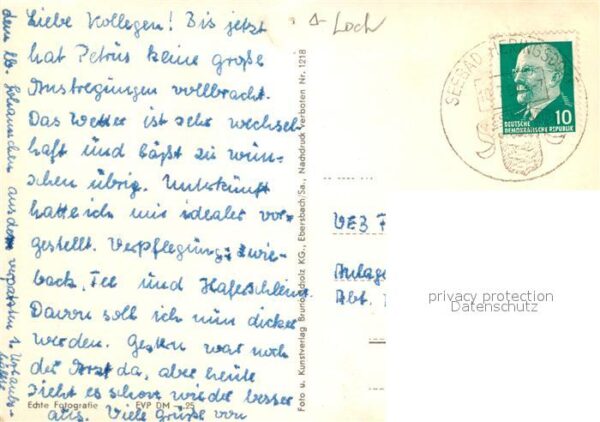 Liebe Kollegen! Bis jetzt
hat Petrus keine große
Anstregungen vollbracht.
Das Wetter ist sehr wechsel-
haft und läßt zu wün-
schen übrig. Unterkünft
hatte ich mir idealer vor-
gestellt. Verpflegung: Zwie-
back, Tee und Haferschleim.
Davon soll ich nun dicker
werden. Gestern war noch
der Arzt da, aber heute
sieht es schon wieder besser
aus. Viele Grüße von
dem lb. Johannchen aus dem verpatzten 1. Urlaubs-
hälfte
Echte Fotografie • EVP DM —.25
Foto u. Kunstverlag Bruno Scholz KG., Ebersbach/Sa., Nachdruck verboten Nr. 1218
Loch
SEEBAD HERINGSDORF
DEUTSCHE
DEMOKRATISCHE REPUBLIK
10
VEB
Anlage
Abt.
privacy protection
Datenschutz